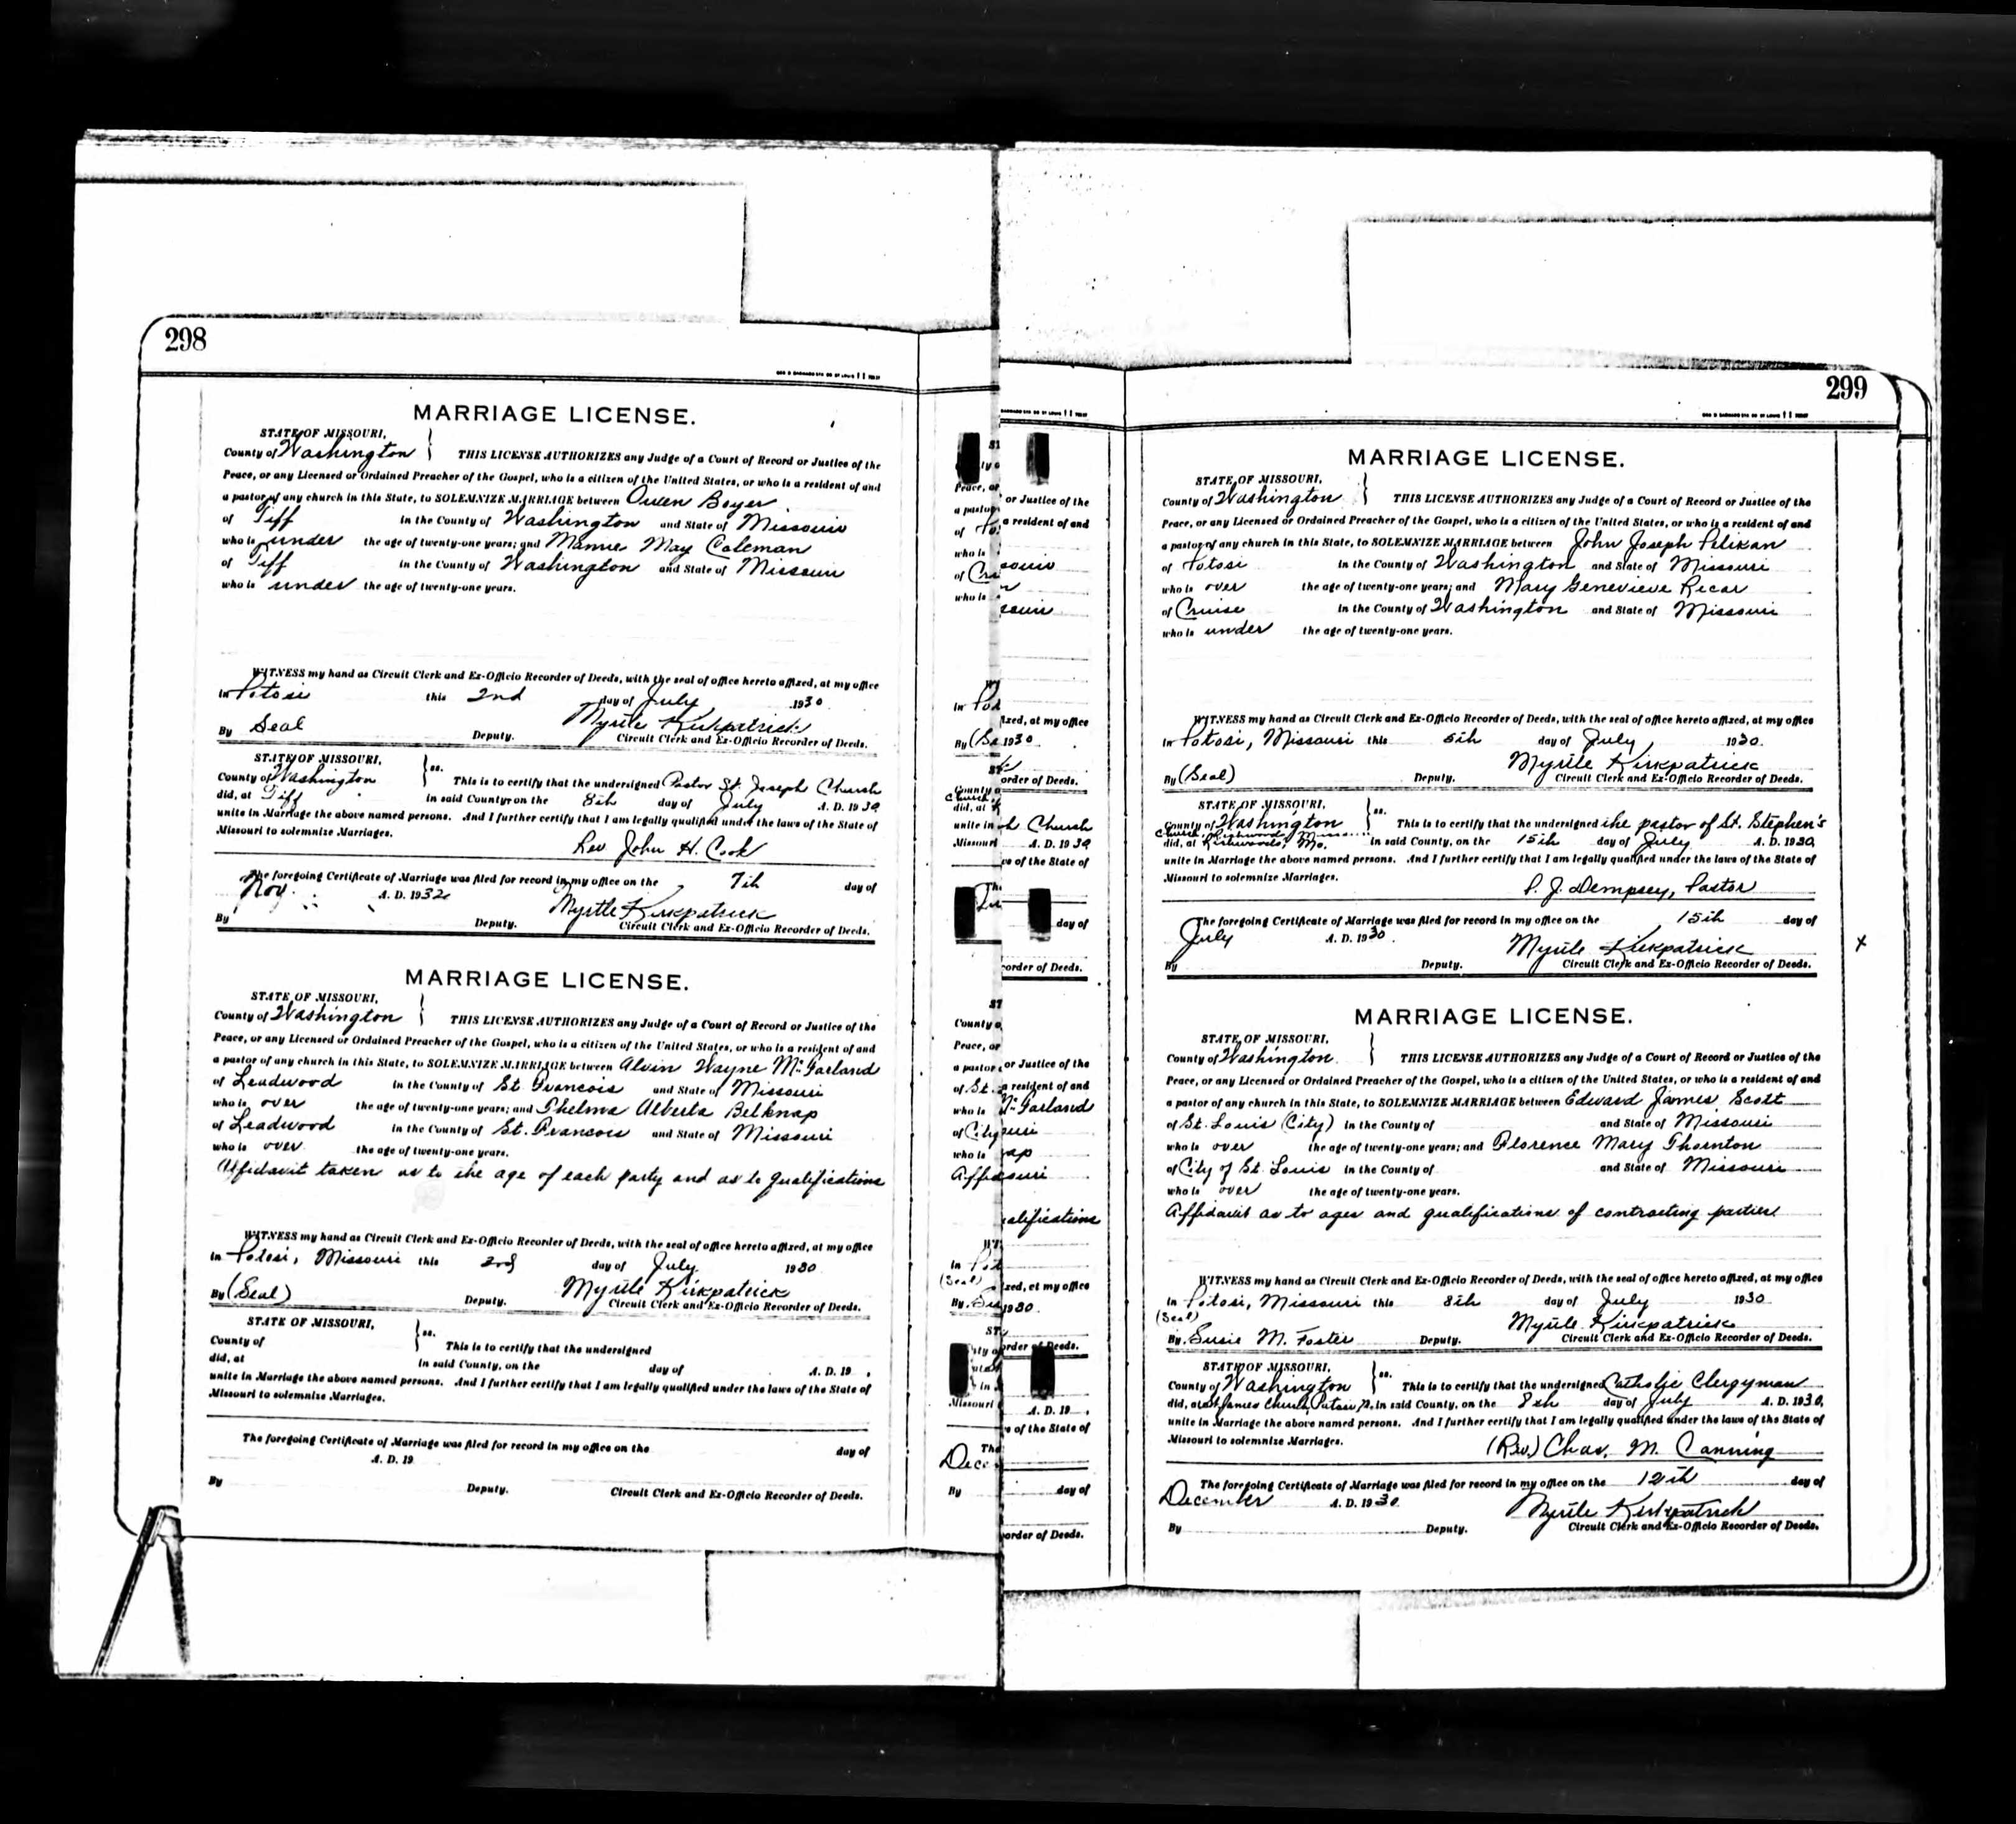 298
MARRIAGE LICENSE.
STATE OF MISSOURI,
County of Washington } THIS LICENSE AUTHORIZES any Judge of a Court of Record or Justice of the
Peace, or any Licensed or Ordained Preacher of the Gospel, who is a citizen of the United States, or who is a resident of and
a pastor of any church in this State, to SOLEMNIZE MARRIAGE between Owen Boyer
of Tiff in the County of Washington and State of Missouri
who is under the age of twenty-one years; and Mamie May Coleman
of Tiff in the County of Washington and State of Missouri
who is under the age of twenty-one years.
WITNESS my hand as Circuit Clerk and Ex-Officio Recorder of Deeds, with the seal of office hereto affixed, at my office
in Potosi this 2nd day of July 1930
By Seal Deputy. Myrtle Kirkpatrick
Circuit Clerk and Ex-Officio Recorder of Deeds.
STATE OF MISSOURI,
County of Washington } ss. This is to certify that the undersigned Pastor St. Joseph Church
did, at Tiff in said County, on the 8th day of July A. D. 1930
unite in Marriage the above named persons. And I further certify that I am legally qualified under the laws of the State of
Missouri to solemnize Marriages.
Rev John H. Cook
The foregoing Certificate of Marriage was filed for record in my office on the 7th day of
Nov. A. D. 1932
Myrtle Kirkpatrick
By Deputy. Circuit Clerk and Ex-Officio Recorder of Deeds.
MARRIAGE LICENSE.
STATE OF MISSOURI,
County of Washington } THIS LICENSE AUTHORIZES any Judge of a Court of Record or Justice of the
Peace, or any Licensed or Ordained Preacher of the Gospel, who is a citizen of the United States, or who is a resident of and
a pastor of any church in this State, to SOLEMNIZE MARRIAGE between Alvin Wayne McFarland
of Leadwood in the County of St. Francois and State of Missouri
who is over the age of twenty-one years; and Thelma Alberta Belknap
of Leadwood in the County of St. Francois and State of Missouri
who is over the age of twenty-one years.
Affidavit taken as to the age of each party and as to qualifications
WITNESS my hand as Circuit Clerk and Ex-Officio Recorder of Deeds, with the seal of office hereto affixed, at my office
in Potosi, Missouri this 3rd day of July 1930
By (Seal) Deputy. Myrtle Kirkpatrick
Circuit Clerk and Ex-Officio Recorder of Deeds.
STATE OF MISSOURI,
County of } ss. This is to certify that the undersigned
did, at in said County, on the day of A. D. 19 ,
unite in Marriage the above named persons. And I further certify that I am legally qualified under the laws of the State of
Missouri to solemnize Marriages.
The foregoing Certificate of Marriage was filed for record in my office on the day of
A. D. 19
By Deputy. Circuit Clerk and Ex-Officio Recorder of Deeds.
299
MARRIAGE LICENSE.
STATE OF MISSOURI,
County of Washington } THIS LICENSE AUTHORIZES any Judge of a Court of Record or Justice of the
Peace, or any Licensed or Ordained Preacher of the Gospel, who is a citizen of the United States, or who is a resident of and
a pastor of any church in this State, to SOLEMNIZE MARRIAGE between John Joseph Pelikan
of Potosi in the County of Washington and State of Missouri
who is over the age of twenty-one years; and Mary Genevieve Recar
of Cruise in the County of Washington and State of Missouri
who is under the age of twenty-one years.
WITNESS my hand as Circuit Clerk and Ex-Officio Recorder of Deeds, with the seal of office hereto affixed, at my office
in Potosi, Missouri this 5th day of July 1930.
By (Seal) Deputy. Myrtle Kirkpatrick
Circuit Clerk and Ex-Officio Recorder of Deeds.
STATE OF MISSOURI,
County of Washington } ss. This is to certify that the undersigned the pastor of St. Stephen's
Church, Richwoods,
did, at Richwoods, Mo. in said County, on the 15th day of July A. D. 1930,
unite in Marriage the above named persons. And I further certify that I am legally qualified under the laws of the State of
Missouri to solemnize Marriages.
P. J. Dempsey, Pastor
The foregoing Certificate of Marriage was filed for record in my office on the 15th day of
July A. D. 1930.
Myrtle Kirkpatrick x
By Deputy. Circuit Clerk and Ex-Officio Recorder of Deeds.
MARRIAGE LICENSE.
STATE OF MISSOURI,
County of Washington } THIS LICENSE AUTHORIZES any Judge of a Court of Record or Justice of the
Peace, or any Licensed or Ordained Preacher of the Gospel, who is a citizen of the United States, or who is a resident of and
a pastor of any church in this State, to SOLEMNIZE MARRIAGE between Edward James Scott
of St. Louis (City) in the County of and State of Missouri
who is over the age of twenty-one years; and Florence Mary Thornton
of City of St. Louis in the County of and State of Missouri
who is over the age of twenty-one years.
Affidavit as to ages and qualifications of contracting parties
WITNESS my hand as Circuit Clerk and Ex-Officio Recorder of Deeds, with the seal of office hereto affixed, at my office
in Potosi, Missouri this 8th day of July 1930
(Seal) Myrtle Kirkpatrick
By Susie M. Foster Deputy. Circuit Clerk and Ex-Officio Recorder of Deeds.
STATE OF MISSOURI,
County of Washington } ss. This is to certify that the undersigned Catholic Clergyman
did, at St James Church, Potosi, in said County, on the 8th day of July A. D. 1930,
unite in Marriage the above named persons. And I further certify that I am legally qualified under the laws of the State of
Missouri to solemnize Marriages.
(Rev.) Chas. M. Canning
The foregoing Certificate of Marriage was filed for record in my office on the 12th day of
December A. D. 1930.
Myrtle Kirkpatrick
By Deputy. Circuit Clerk and Ex-Officio Recorder of Deeds.